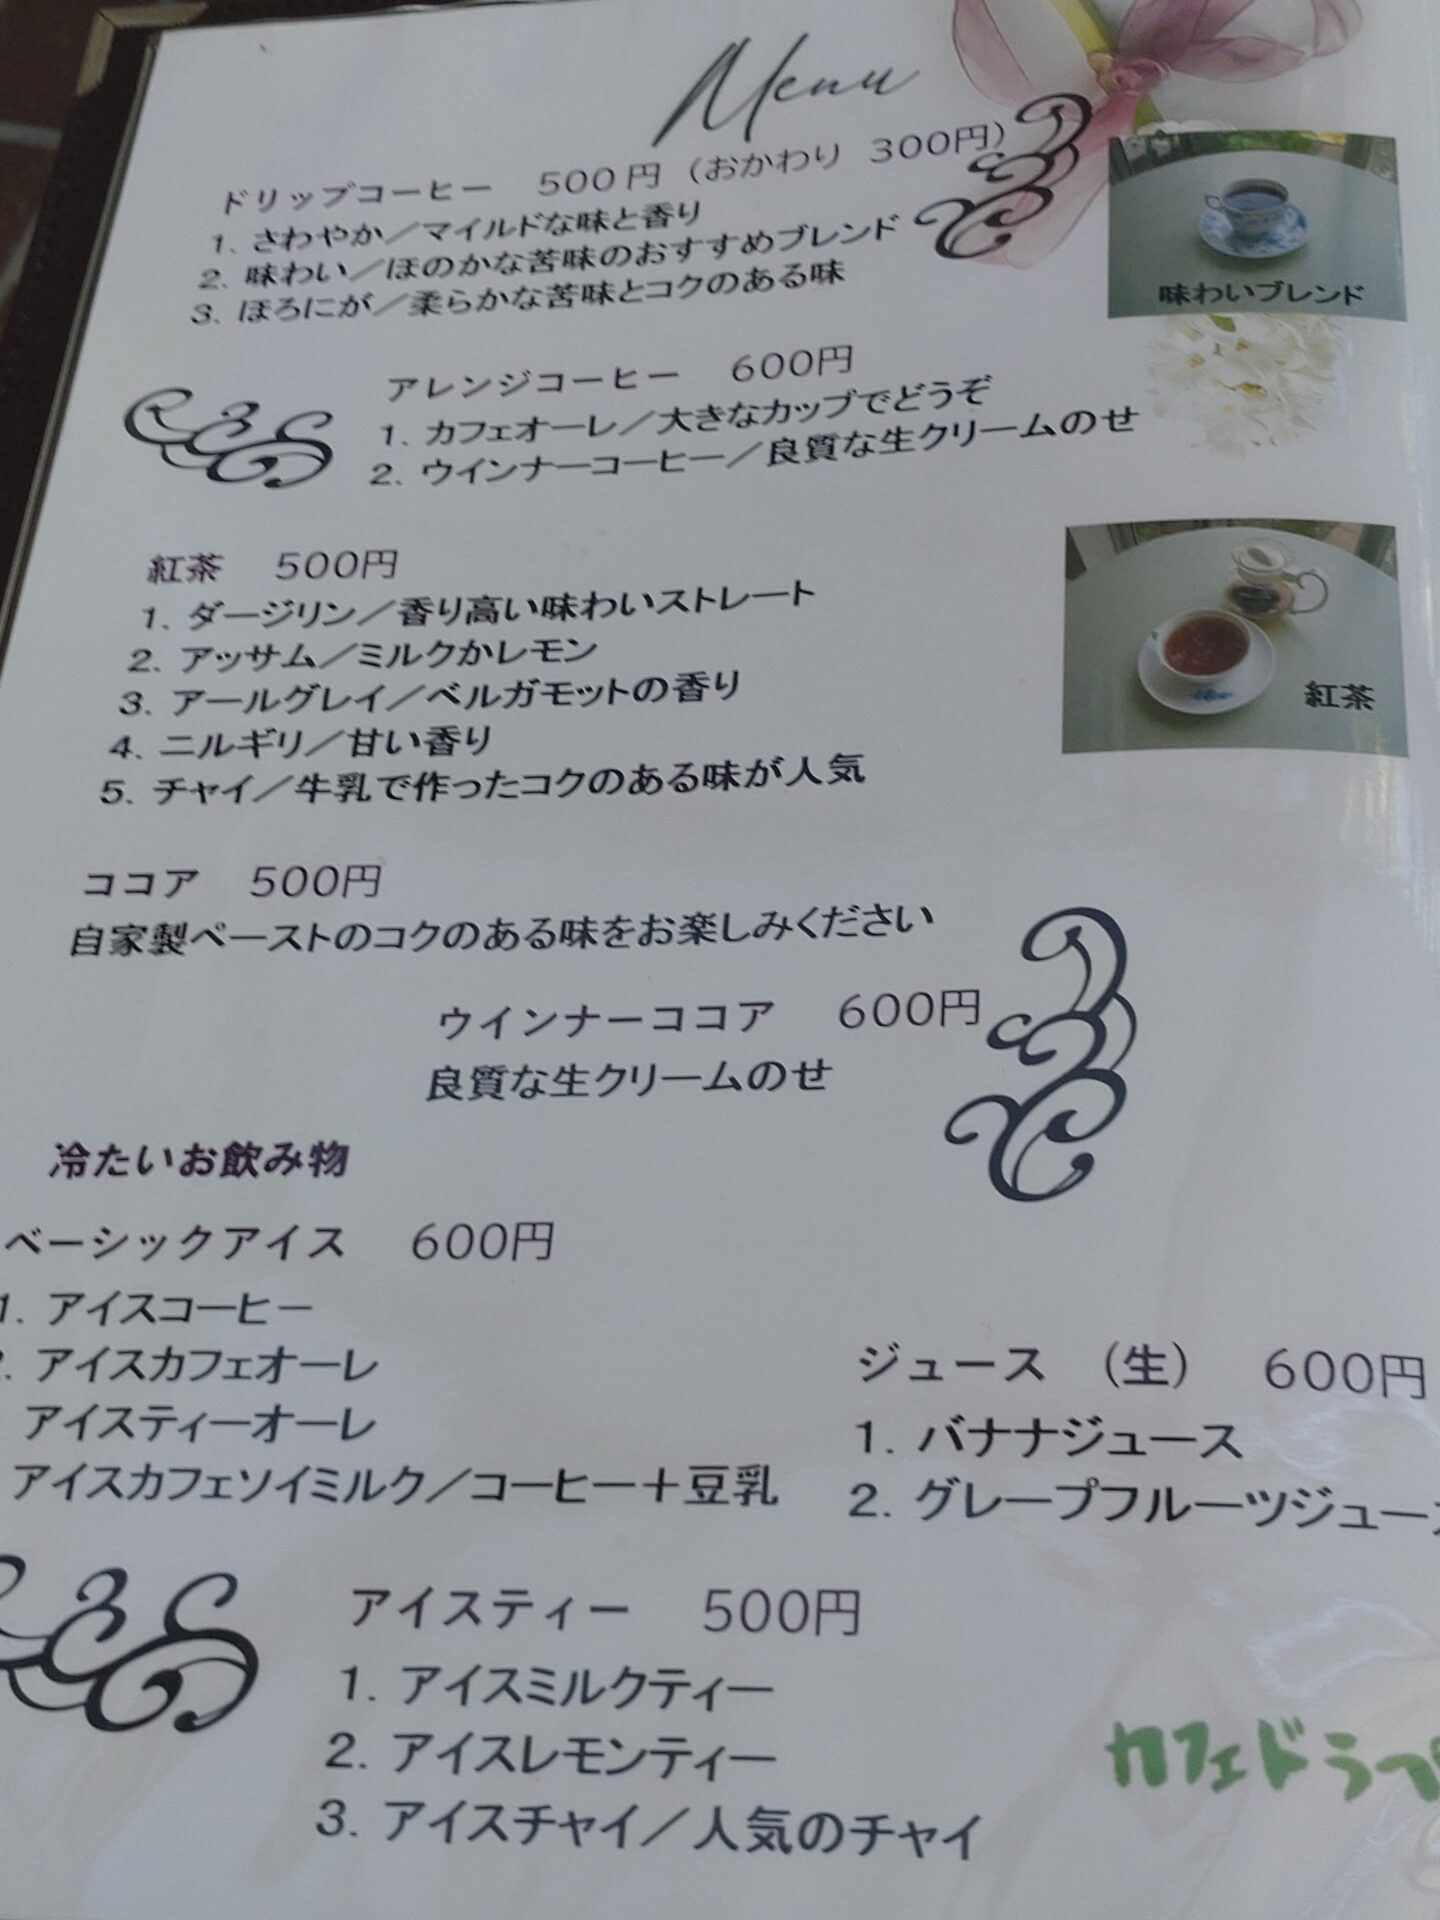 Menu
ドリップコーヒー 500円（おかわり 300円）
1. さわやか／マイルドな味と香り
2. 味わい／ほのかな苦味のおすすめブレンド
3. ほろにが／柔らかな苦味とコクのある味
味わいブレンド
アレンジコーヒー 600円
1. カフェオーレ／大きなカップでどうぞ
2. ウインナーコーヒー／良質な生クリームのせ
紅茶 500円
1. ダージリン／香り高い味わいストレート
2. アッサム／ミルクかレモン
3. アールグレイ／ベルガモットの香り
4. ニルギリ／甘い香り
5. チャイ／牛乳で作ったコクのある味が人気
紅茶
ココア 500円
自家製ペーストのコクのある味をお楽しみください
ウインナーココア 600円
良質な生クリームのせ
冷たいお飲み物
ベーシックアイス 600円
1. アイスコーヒー
2. アイスカフェオーレ
アイスティーオーレ
アイスカフェソイミルク／コーヒー＋豆乳
ジュース （生） 600円
1. バナナジュース
2. グレープフルーツジュース
アイスティー 500円
1. アイスミルクティー
2. アイスレモンティー
3. アイスチャイ／人気のチャイ
カフェドらぺ